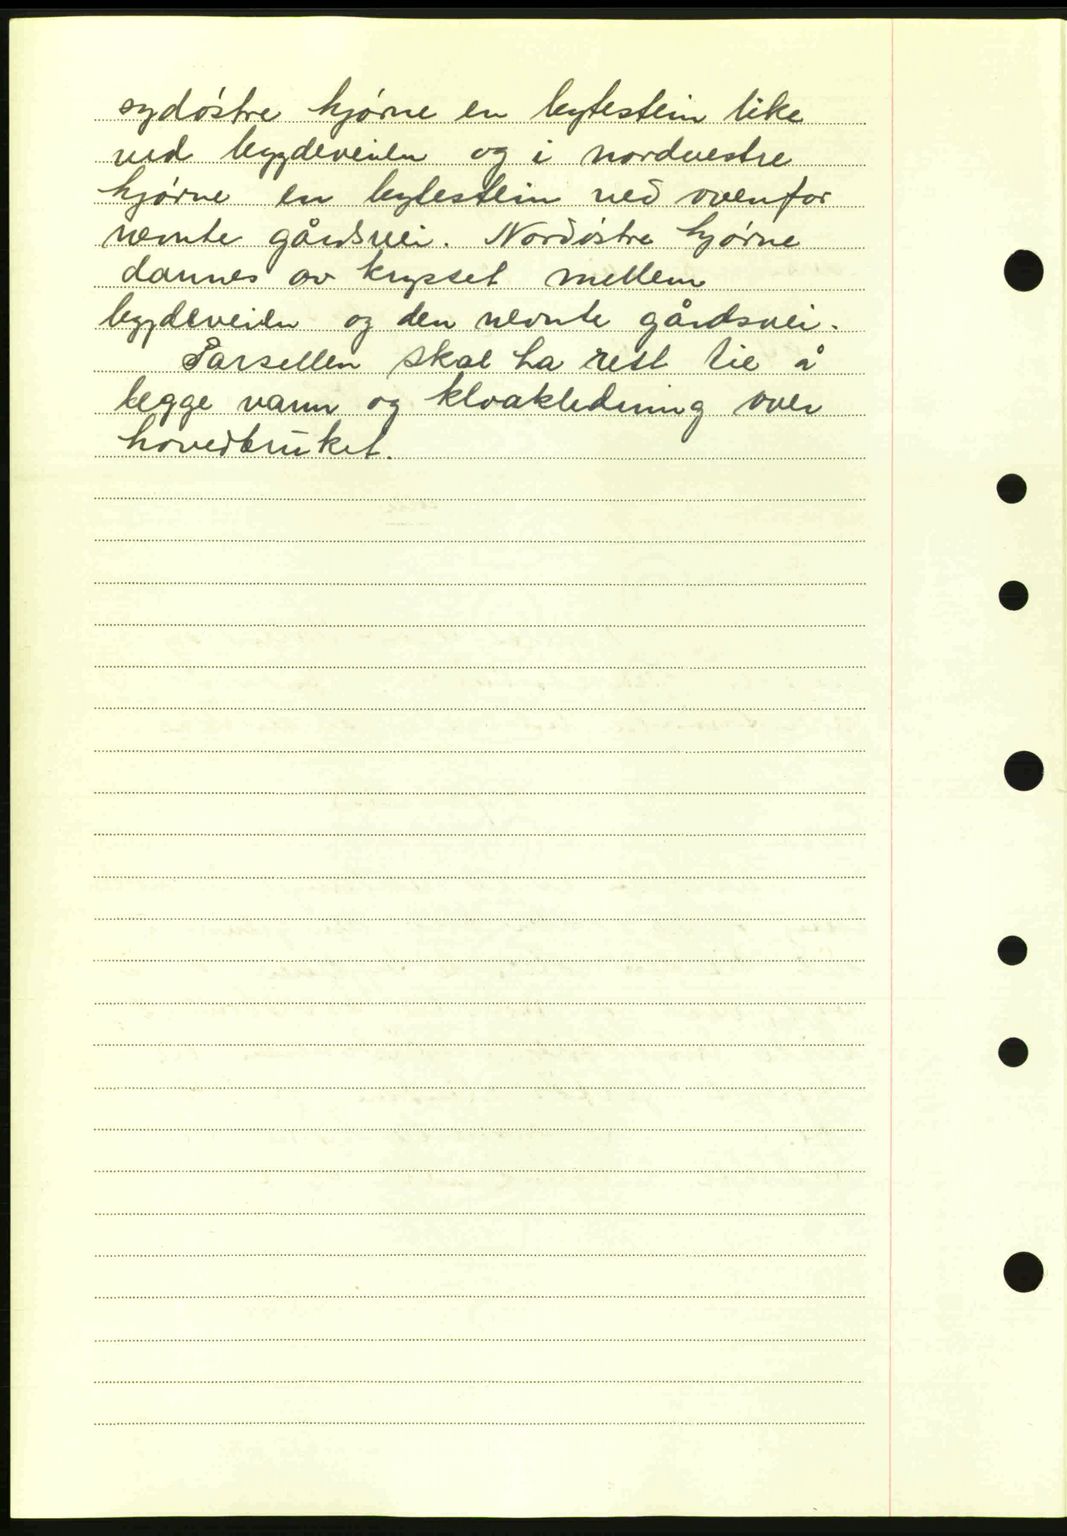 sydøstre hjørne en bytestein like
ved bygdeveien og i nordvestre
hjørne en bytestein ved ovenfor
nevnte gårdsvei. Nordøstre hjørne
dannes av krysset mellem
bygdeveien og den nevnte gårdsvei.
Parsellen skal ha rett til å
legge vann og kloakledning over
hovedbruket.